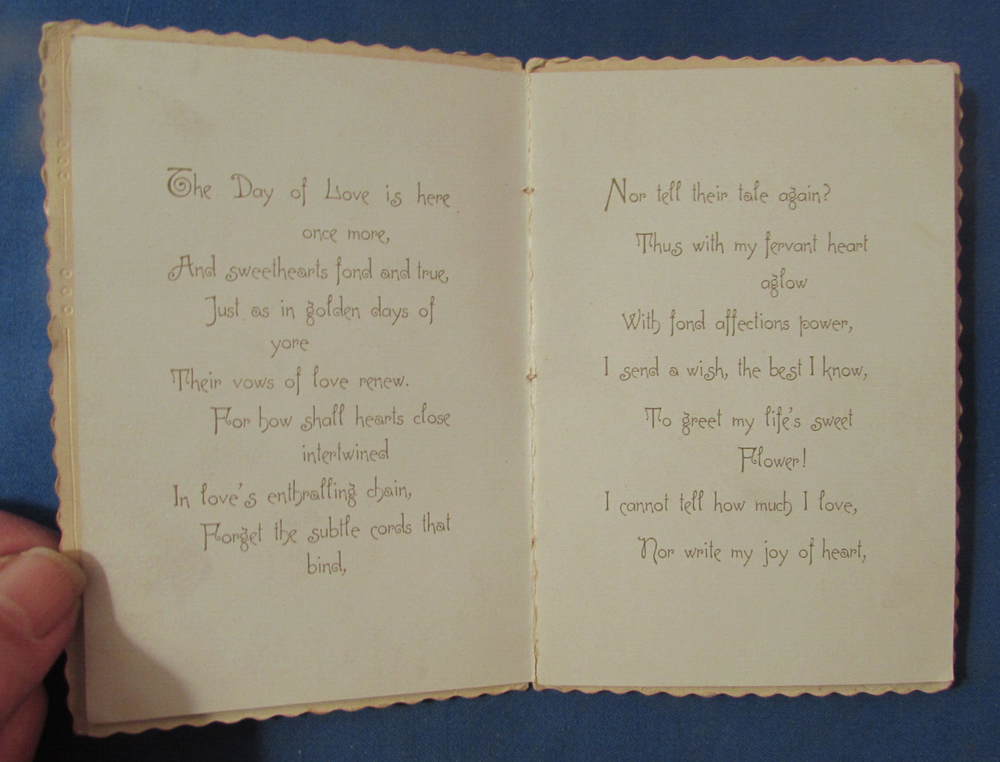 The Day of Love is here
once more,
And sweethearts fond and true,
Just as in golden days of
yore
Their vows of love renew.
For how shall hearts close
intertwined
In love's enthralling chain,
Forget the subtle cords that
bind,
Nor tell their tale again?
Thus with my fervant heart
aglow
With fond affections power,
I send a wish, the best I know,
To greet my life's sweet
Flower!
I cannot tell how much I love,
Nor write my joy of heart,